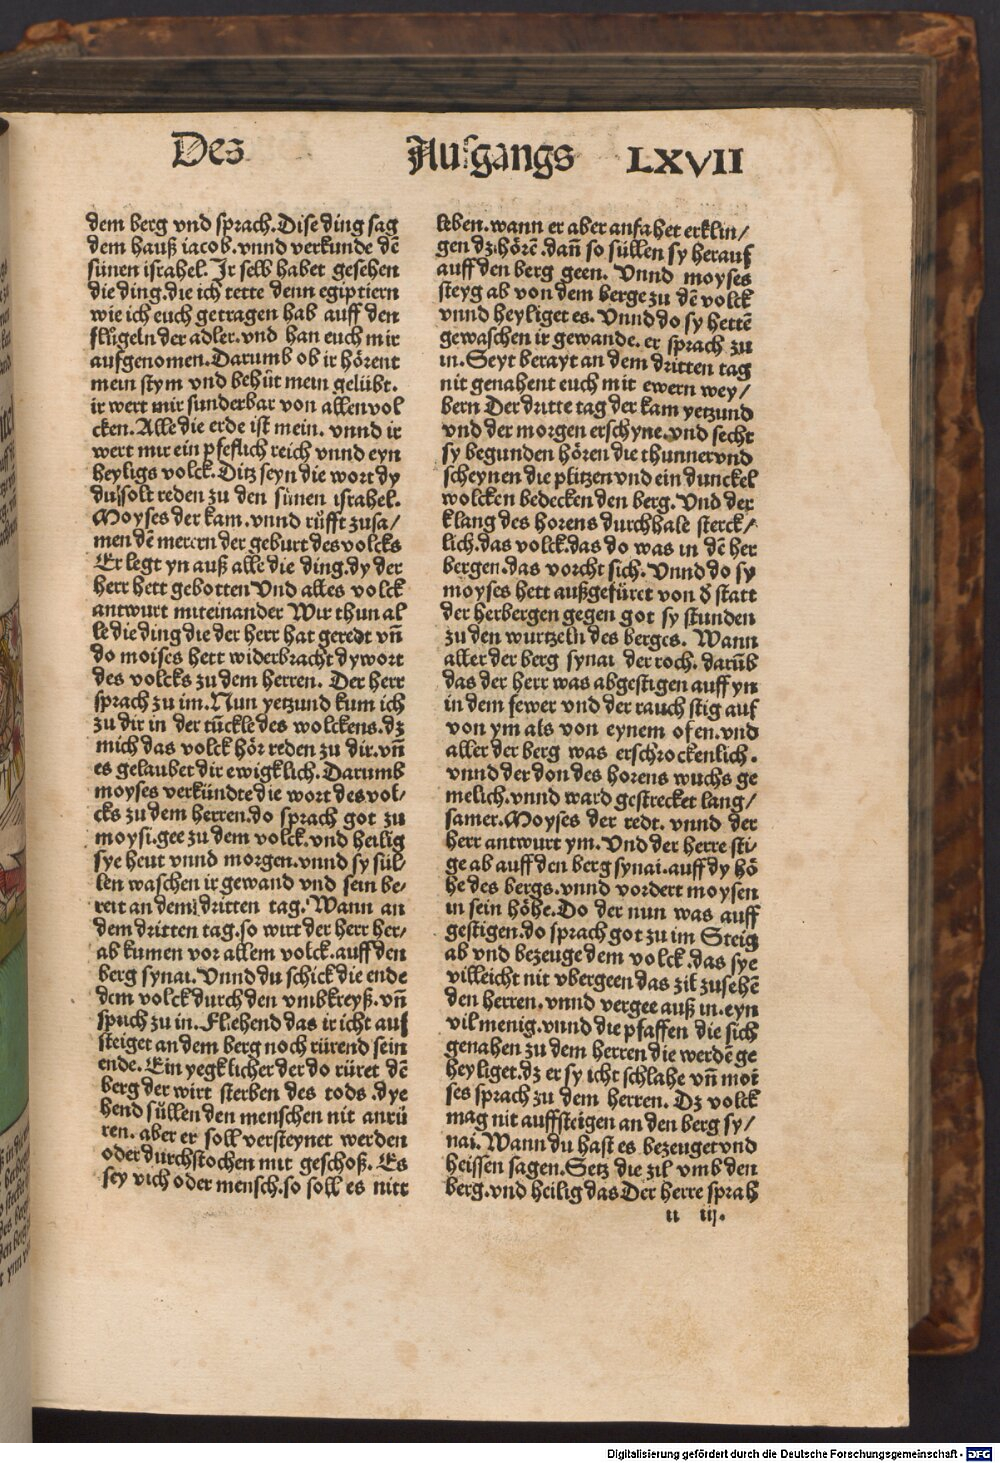 Des Ausgangs LXVII
dem berg vnd sprach. Dise ding sag
dem hauß iacob. vnnd verkunde dē
sünen israhel. Ir selb habet gesehen
die ding. die ich tette denn egiptiern
wie ich euch getragen hab auff den
flügeln der adler. vnd han euch mir
aufgenomen. Darumb ob ir hörent
mein stym vnd behüt mein gelübt.
ir wert mir sunderbar von allen vol
cken. Alle die erde ist mein. vnnd ir
wert mir ein pfeflich reich vnnd eyn
heyligs volck. Ditz seyn die wort dy
du solt reden zu den sünen israhel.
Moyses der kam. vnnd rüfft zusa/
men dē merern der geburt des volcks
Er legt yn auß alle die ding. dy der
herr hett gebotten Vnd alles volck
antwurt miteinander Wir thun al
le die ding die der herr hat geredt vn̄
do moises hett widerbracht dy wort
des volcks zu dem herren. Der herr
sprach zu im. Nun yetzund kum ich
zu dir in der tūckle des wolckens. dz
mich das volck hör reden zu dir. vn̄
es gelaub et dir ewigklich. Darumb
moyses verkündte die wort des vol/
cks zu dem herren. do sprach got zu
moysi. gee zu dem volck. vnd heilig
sye heut vnnd morgen. vnnd sy sül/
len waschen ir gewand vnd sein be/
reit an dem dritten tag. Wann an
dem dritten tag. so wirt der herr her/
ab kumen vor allem volck. auff den
berg synai. Vnnd du schick die ende
dem volck durch den vmbkreyß. vn̄
sprich zu in. Fliehend das ir icht auf
steiget an dem berg noch rürend sein
ende. Ein yegklicher der do rüret dē
berg der wirt sterben des tods. dye
hend süllen den menschen nit anrü
ren. aber er soll versteynet werden
oder durchstochen mit geschoß. Es
sey vich oder mensch. so soll es nitt
leben. wann er aber anfahet erklin/
gen dz hörē. dan̄ so süllen sy herauf
auff den berg geen. Vnnd moyses
steyg ab von dem berge zu dē volck
vnnd heyliget es. Vnnd do sy hettē
gewaschen ir gewande. er sprach zu
in. Seyt berayt an dem dritten tag
nit genahent euch mit ewern wey/
bern Der dritte tag der kam yetzund
vnd der morgen erschyne. vnd secht
sy begunden hören die thunner vnd
scheynen die plitzen vnd ein dunckel
wolcken bedecken den berg. Vnd der
klang des horens durchhale sterck/
lich. das volck. das do was in dē her
bergen. das vorcht sich. Vnnd do sy
moyses hett außgefüret von d̄ statt
der herbergen gegen got sy stunden
zu den wurtzeln des berges. Wann
aller der berg synai der roch. darūb
das der herr was abgestigen auff yn
in dem fewer vnd der rauch stig auf
von ym als von eynem ofen. vnd
aller der berg was erschrockenlich.
vnnd der don des horens wuchs ge
melich. vnnd ward gestrecket lang/
samer. Moyses der redt. vnnd der
herr antwurt ym. Vnd der herre sti/
ge ab auff den berg synai. auff dy hö
he des bergs. vnnd vordert moysen
in sein höhe. Do der nun was auff
gestigen. do sprach got zu im Steig
ab vnd bezeuge dem volck. das sye
villeicht nit vbergeen das zil zusehē
den herren. vnnd vergee auß in. eyn
vil menig. vnnd die pfaffen die sich
genahen zu dem herren die werdē ge
heyliget. dz er sy icht schlahe vn̄ moi
ses sprach zu dem herren. Dz volck
mag nit auffsteigen an den berg sy/
nai. Wann du hast es bezeuget vnd
heissen sagen. Setz die zil vmb den
berg. vnd heilig das Der herre sprah
ii iij.
Digitalisierung gefördert durch die Deutsche Forschungsgemeinschaft - DFG